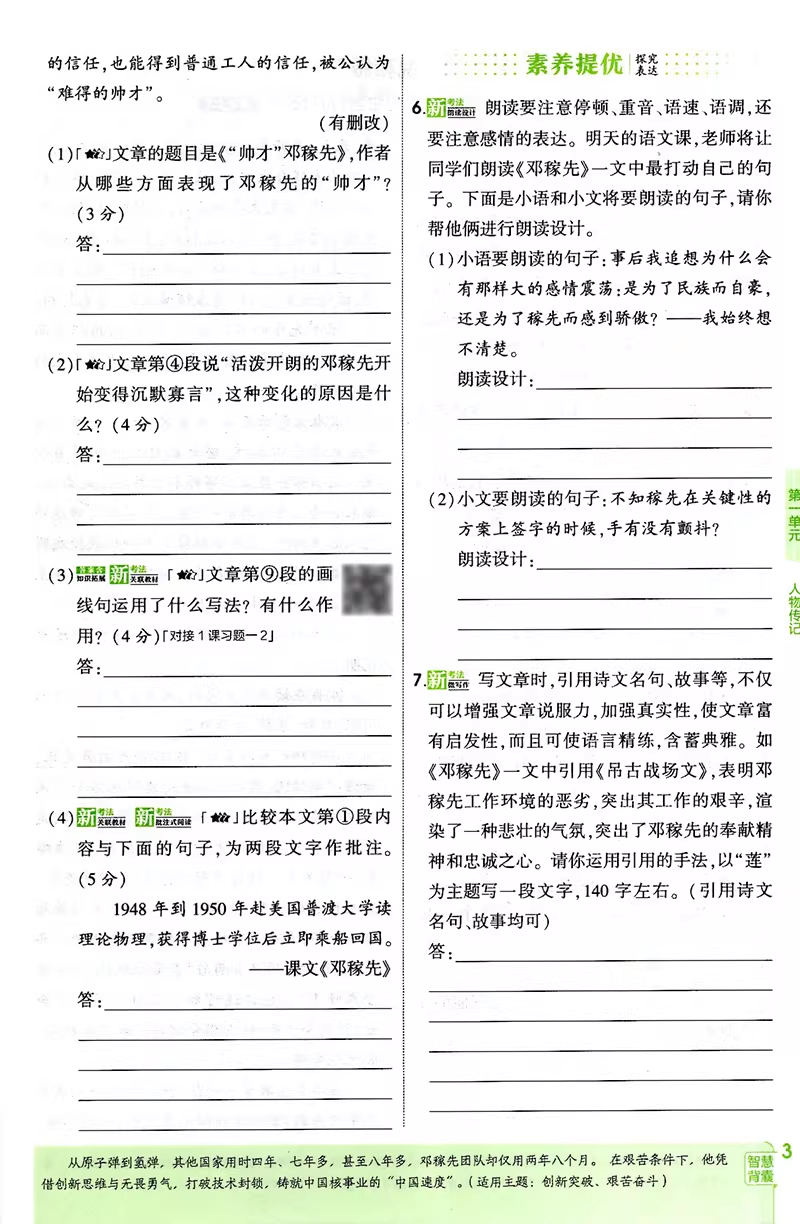 的信任,也能得到普通工人的信任,被公认为
“难得的帅才”。
(有删改)
(1)「★★」文章的题目是《“帅才”邓稼先》,作者
从哪些方面表现了邓稼先的“帅才”?
(3分)
答:
(2)「★★」文章第④段说“活泼开朗的邓稼先开
始变得沉默寡言”,这种变化的原因是什
么?(4分)
答:
(3)答案含知识拓展 新考法关联教材「★★」文章第⑨段的画
线句运用了什么写法?有什么作
用?(4分)「对接1课习题一2」
答:
(4)新考法关联教材 新考法批注式阅读「★★」比较本文第①段内
容与下面的句子,为两段文字作批注。
(5分)
1948年到1950年赴美国普渡大学读
理论物理,获得博士学位后立即乘船回国。
——课文《邓稼先》
答:
素养提优 探究表达
6.新考法朗读设计 朗读要注意停顿、重音、语速、语调,还
要注意感情的表达。明天的语文课,老师将让
同学们朗读《邓稼先》一文中最打动自己的句
子。下面是小语和小文将要朗读的句子,请你
帮他俩进行朗读设计。
(1)小语要朗读的句子:事后我追想为什么会
有那样大的感情震荡:是为了民族而自豪,
还是为了稼先而感到骄傲?——我始终想
不清楚。
朗读设计:
(2)小文要朗读的句子:不知稼先在关键性的
方案上签字的时候,手有没有颤抖?
朗读设计:
7.新考法微写作 写文章时,引用诗文名句、故事等,不仅
可以增强文章说服力,加强真实性,使文章富
有启发性,而且可使语言精练,含蓄典雅。如
《邓稼先》一文中引用《吊古战场文》,表明邓
稼先工作环境的恶劣,突出其工作的艰辛,渲
染了一种悲壮的气氛,突出了邓稼先的奉献精
神和忠诚之心。请你运用引用的手法,以“莲”
为主题写一段文字,140字左右。(引用诗文
名句、故事均可)
答:
第一单元 人物传记
从原子弹到氢弹,其他国家用时四年、七年多,甚至八年多,邓稼先团队却仅用两年八个月。在艰苦条件下,他凭
借创新思维与无畏勇气,打破技术封锁,铸就中国核事业的“中国速度”。(适用主题:创新突破、艰苦奋斗)
智慧
背囊
3